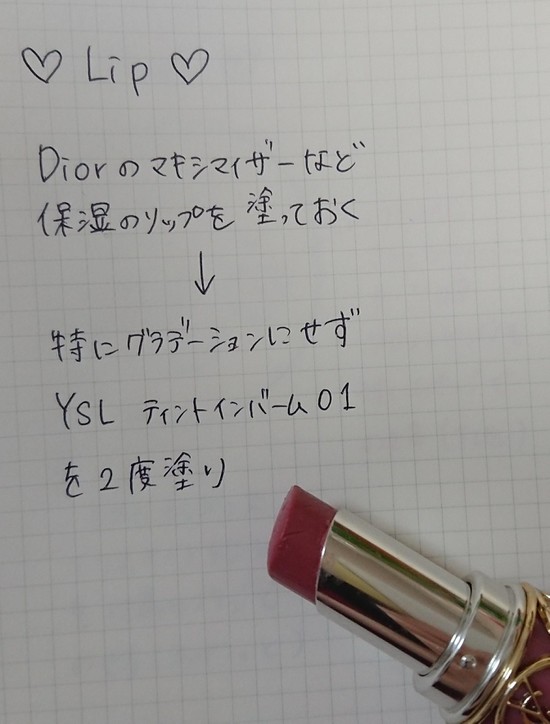 ♡ Lip ♡
Diorのマキシマイザーなど
保湿のリップを塗っておく
↓
特にグラデーションにせず
YSL ティントインバーム01
を2度塗り